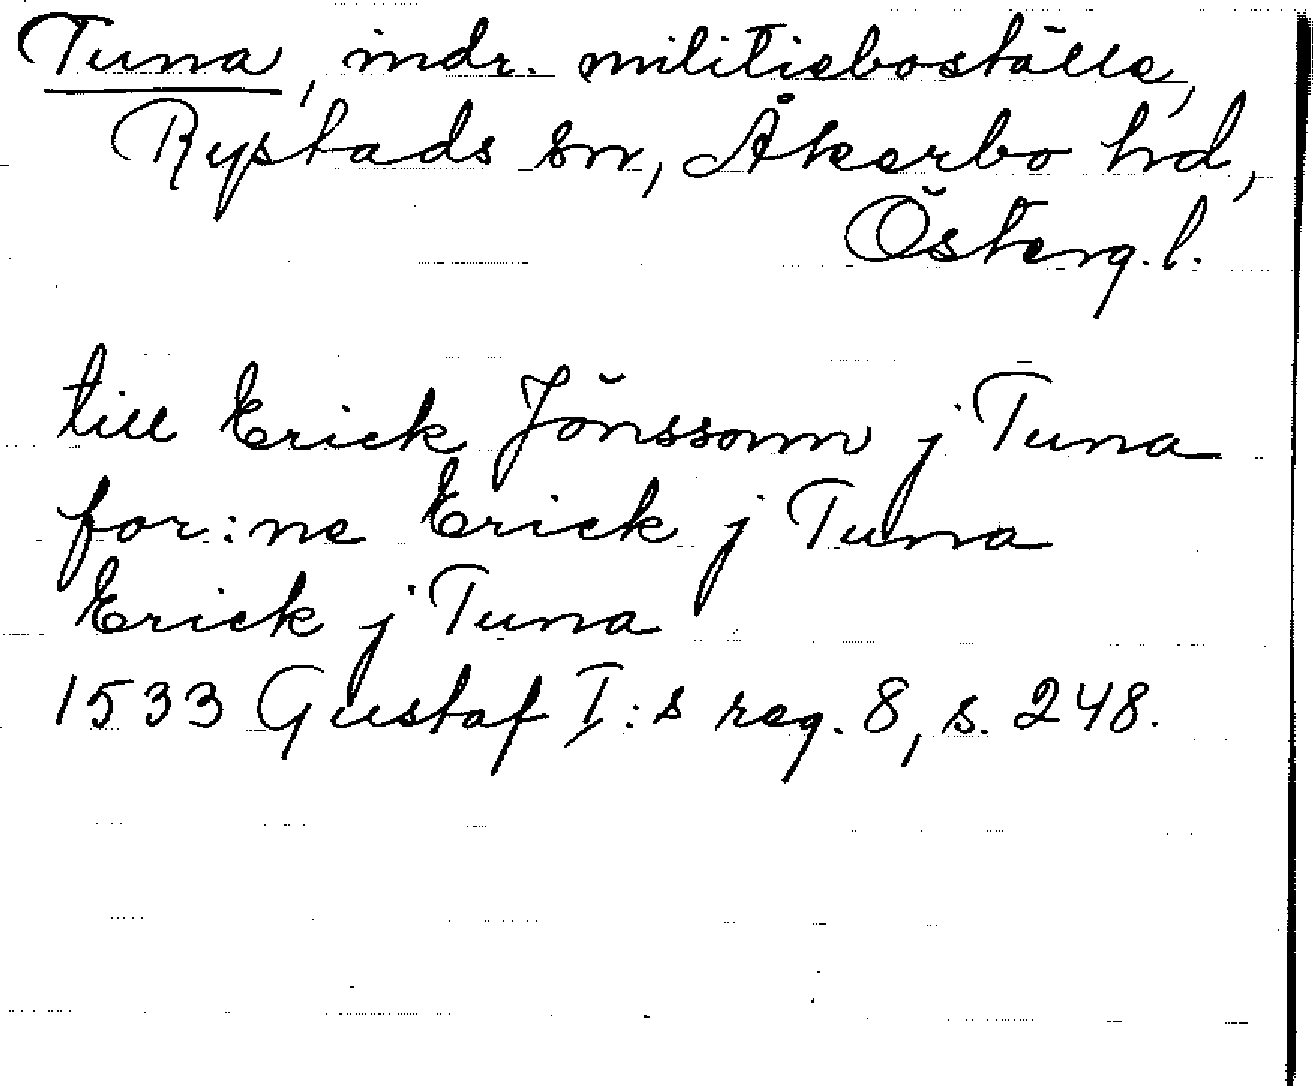 Tuna, indr. militieboställe,
Rystads sn, Åkerbo hd,
Österg.l.
till Erick Jönssonn j Tuna
for:ne Erick j Tuna
Erick j Tuna
1533 Gustaf I:s reg. 8, s. 248.